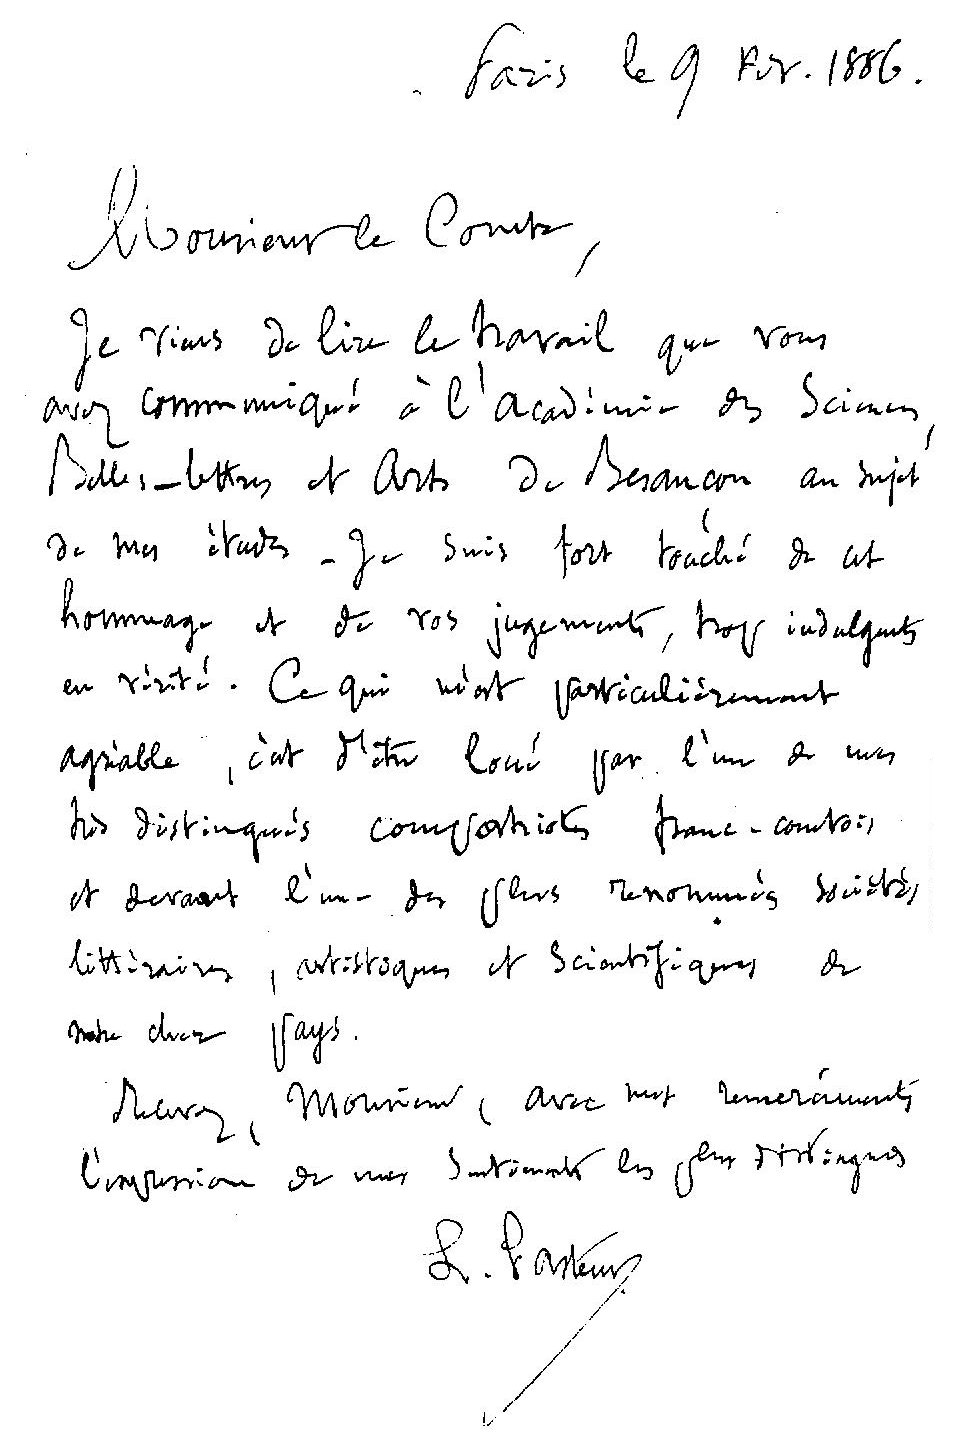 Paris le 9 Fév. 1886.
Monsieur le Comte,
Je viens de lire le travail que vous
avez communiqué à l'Académie des Sciences,
Belles-lettres et Arts de Besançon au sujet
de mes études - Je suis fort touché de cet
hommage et de vos jugements, trop indulgents
en vérité. Ce qui m'est particulièrement
agréable, c'est d'être loué par l'un de mes
très distingués compatriotes franc-comtois
et devant l'une des plus renommées sociétés
littéraires, artistiques et scientifiques de
notre cher pays.
Recevez, Monsieur, avec mes remerciements
l'expression de mes sentiments les plus distingués
L. Pasteur